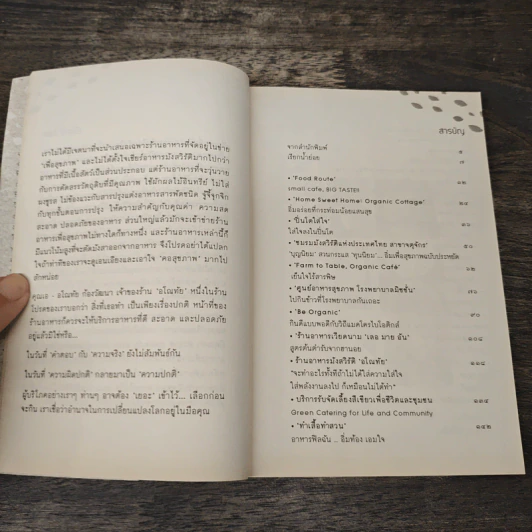 เราไม่ได้มีเจตนาที่จะนำเสนอเฉพาะร้านอาหารที่จัดอยู่ในข่าย
"เพื่อสุขภาพ" และไม่ได้ตั้งใจเชียร์อาหารมังสวิรัติมากไปกว่า
อาหารที่มีเนื้อสัตว์เป็นส่วนประกอบ แต่ร้านอาหารที่จะวุ่นวาย
กับการคัดสรรวัตถุดิบที่มีคุณภาพ ใช้ผักผลไม้อินทรีย์ ไม่ใส่
ผงชูรส ไม่ข้องแวะกับสารปรุงแต่งอาหารสารพัดชนิด รู้จี้จุกจิก
กับทุกขั้นตอนการปรุง ให้ความสำคัญกับคุณค่า ความสด
สะอาด และปลอดภัยของอาหาร ส่วนใหญ่แล้วมักจะเข้าข่ายร้าน
อาหารเพื่อสุขภาพไม่ทางใดก็ทางหนึ่ง และร้านอาหารเหล่านี้ก็
มีแนวโน้มสูงที่จะตัดมังสาออกจากอาหาร จึงโปรดอย่าได้แปลก
ใจถ้าท่าทีของเราจะดูเอนเอียงและเอาใจ "คอสุขภาพ" มากไป
สักหน่อย
คุณเอ - อโณทัย ก้องวัฒนา เจ้าของร้าน "อโณทัย" หนึ่งในร้าน
โปรดของเราบอกว่า สิ่งที่เธอทำ เป็นเพียงเรื่องปกติ หน้าที่ของ
ร้านอาหารก็ควรจะให้บริการอาหารที่ดี สะอาด และปลอดภัย
อยู่แล้วมิใช่หรือ...
ในวันที่ "คำตอบ" กับ "ความจริง" ยังไม่สัมพันธ์กัน
ในวันที่ "ความผิดปกติ" กลายมาเป็น "ความปกติ"
ผู้บริโภคอย่างเราๆ ท่านๆ อาจต้อง "เยอะ" เข้าไว้... เลือกก่อน
จะกิน เราเชื่อว่าอำนาจในการเปลี่ยนแปลงโลกอยู่ในมือคุณ
สารบัญ
จากสำนักพิมพ์ ๕
เรียกน้ำย่อย ๗
• 'Food Route' ๑๒
small cafe, BIG TASTER
• 'Home Sweet Home! Organic Cottage' ๒๔
อิ่มอร่อยที่กระท่อมน้อยแสนสุข
• 'ปิ่นโตใส่ใจ'
ใส่ใจลงในปิ่นโต
• 'ชมรมมังสวิรัติแห่งประเทศไทย สาขาจตุจักร'
'บุญนิยม' สวนกระแส 'ทุนนิยม'... อิ่มเพื่อสุขภาพฉบับประหยัด
• 'Farm to Table, Organic Café'
เย็นใจไร้สารพิษ
• 'ศูนย์อาหารสุขภาพ โรงพยาบาลมิชชั่น'
ไปกินข้าวที่โรงพยาบาลกันเถอะ
• 'Be Organic' ๙๐
กินดีแบบพอดีกับวิถีแมคโครไบโอติกส์
• 'ร้านอาหารเวียดนาม 'เลอ มาย อัน'
สูตรต้นตำรับจากฮานอย
• ร้านอาหารมังสวิรัติ 'อโณทัย' ๑๑๘
"จะทำอะไรทั้งทีถ้าไม่ได้ใส่ความใส่ใจ
ใส่พลังงานลงไป ก็เหมือนไม่ได้ทำ"
• บริการรับจัดเลี้ยงสีเขียวเพื่อชีวิตและชุมชน ๑๓๔
Green Catering for Life and Community
• 'ทำเสื้อทำสวน' ๑๔๒
อาหารฟิลฉัน ... อิ่มท้อง เอมใจ